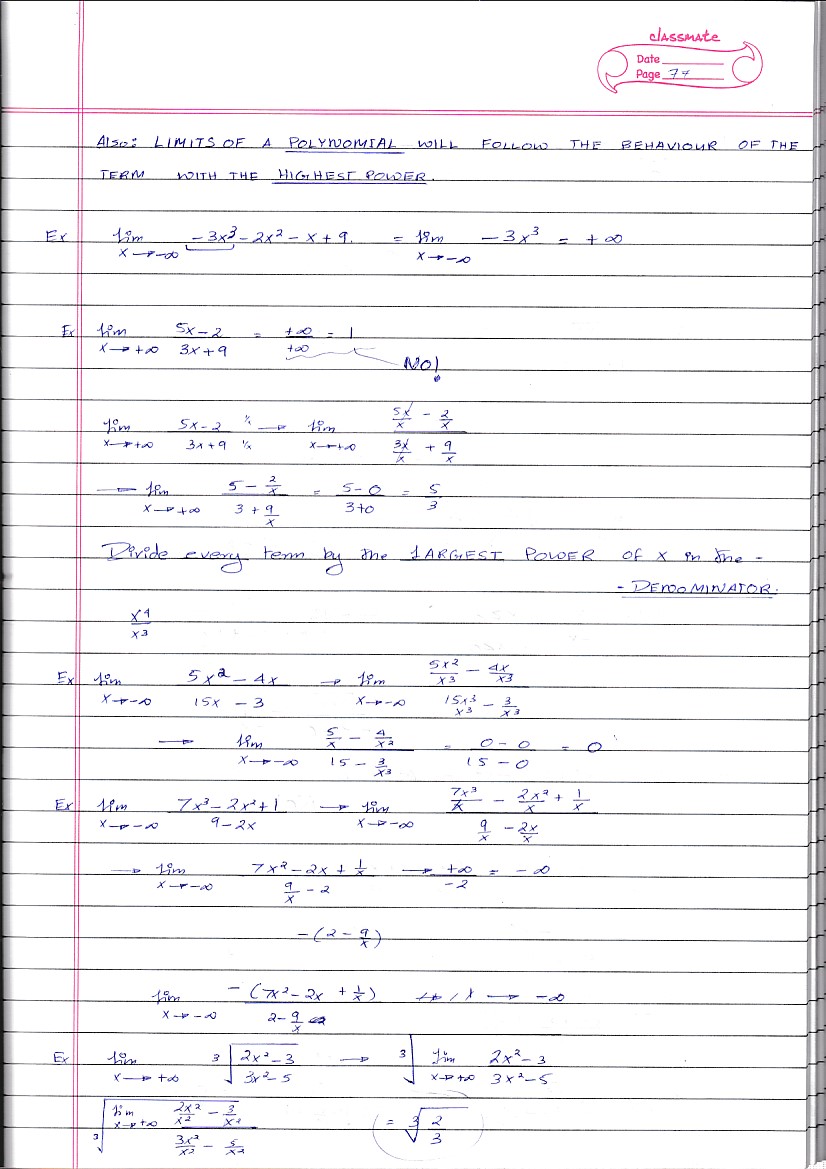 classmate
Date
Page 77
Also: LIMITS OF A POLYNOMIAL WILL FOLLOW THE BEHAVIOUR OF THE
TERM WITH THE HIGHEST POWER.
Ex lim x→-∞ -3x³ - 2x² - x + 9. = lim x→-∞ -3x³ = +∞
Ex lim x→+∞ (5x-2)/(3x+9) = +∞/+∞ = 1
NO!
lim x→+∞ (5x-2)/(3x+9) (1/x)/(1/x) → lim x→+∞ (5x/x - 2/x)/(3x/x + 9/x)
→ lim x→+∞ (5 - 2/x)/(3 + 9/x) = (5-0)/(3+0) = 5/3
Divide every term by the LARGEST POWER OF x in the -
- DENOMINATOR.
x⁴/x³
Ex lim x→-∞ (5x² - 4x)/(15x - 3) → lim x→-∞ (5x²/x³ - 4x/x³)/(15x³/x³ - 3/x³)
→ lim x→-∞ (5/x - 4/x²)/(15 - 3/x³) = (0-0)/(15-0) = 0
Ex lim x→-∞ (7x³ - 2x² + 1)/(9 - 2x) → lim x→-∞ (7x³/x - 2x²/x + 1/x)/(9/x - 2x/x)
→ lim x→-∞ (7x² - 2x + 1/x)/(9/x - 2) → +∞/-2 = -∞
-(2 - 9/x)
lim x→-∞ -(7x² - 2x + 1/x)/(2 - 9/x) → -∞
Ex lim x→+∞ ³√((2x²-3)/(3x²-5)) → ³√(lim x→+∞ (2x²-3)/(3x²-5))
³√(lim x→+∞ (2x²/x² - 3/x²)/(3x²/x² - 5/x²)) = ³√(2/3)